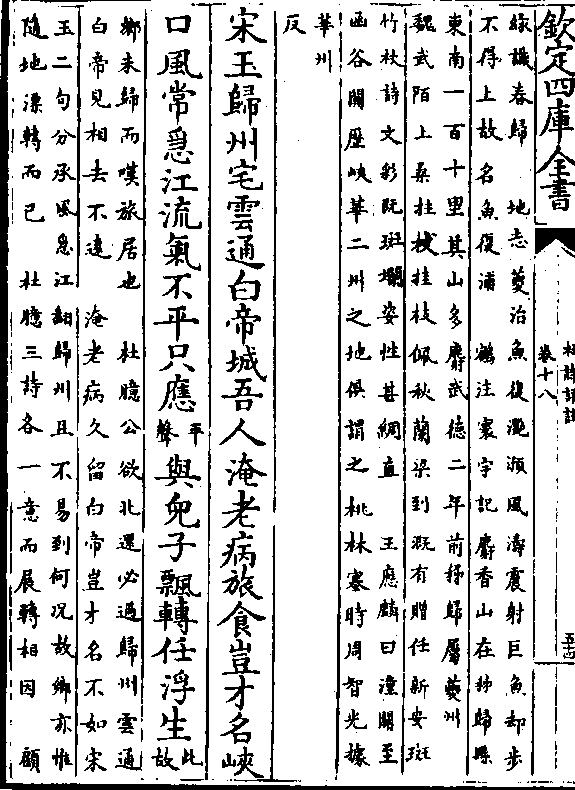 欽定四庫全書
杜詩詳註
卷十八
五十四
綠識春歸 地志夔治魚復灔澦風濤震射巨魚却步
不得上故名魚復浦 鶴注寰宇記麝香山在秭歸縣
東南一百十里其山多麝武德二年前秭歸屬夔州
魏武陌上桑拄杖挂枝佩秋蘭梁到溉有贈任新安斑
竹杖詩文彩既斑斕姿性甚綢直 王應麟曰潼關至
函谷關歷峽華二州之地俱謂之桃林塞時周智光據
華州
反
宋玉歸州宅雲通白帝城吾人淹老病旅食豈才名峽
口風常急江流氣不平只應平聲與兒子飄轉任浮生此故
鄉未歸而嘆旅居也 杜臆公欲北還必過歸州雲通
白帝見相去不遠 淹老病久留白帝豈才名不如宋
玉二句分承風急江翻歸州且不易到何况故鄉亦惟
隨地漂轉而已 杜臆三詩各一意而展轉相因 顧